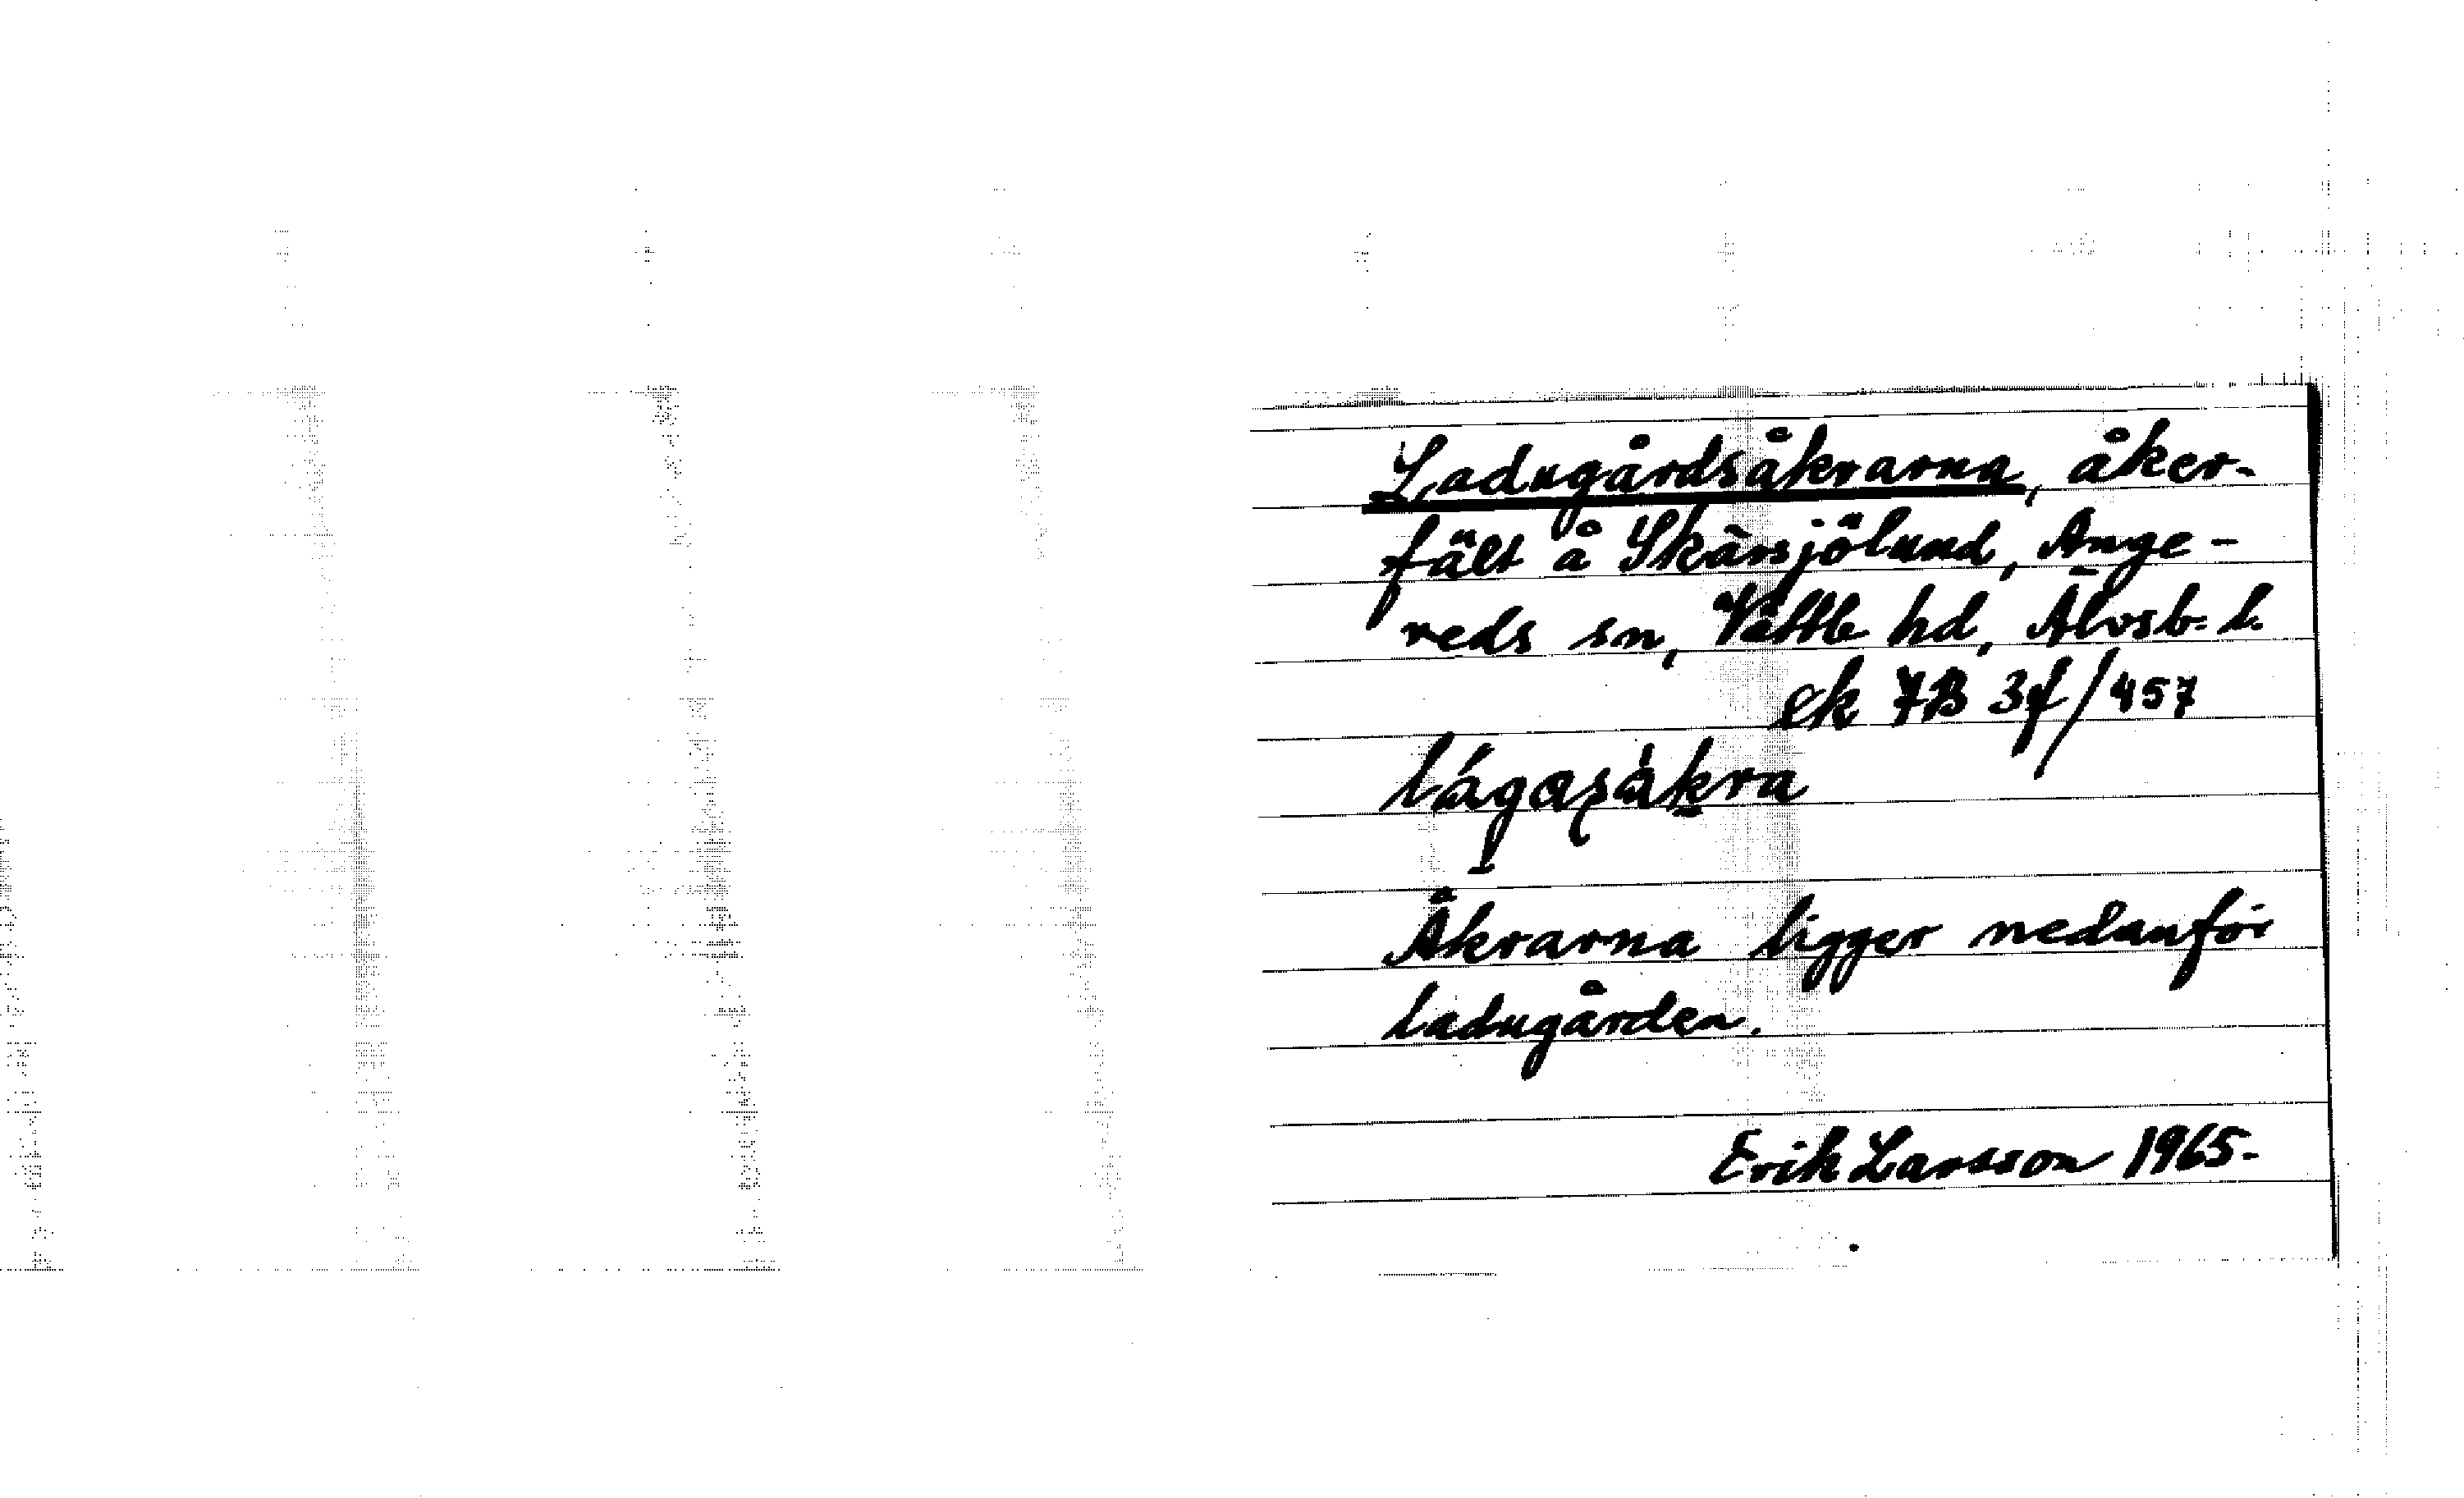 Ladugårdsåkrarna, åker-
fält å Skärsjölund, Ange-
reds sn, Vättle hd, Älvsb. l.
ek 7B 3f/457
lágasàkra
Åkrarna ligger nedanför
ladugården.
Erik Larsson 1965-